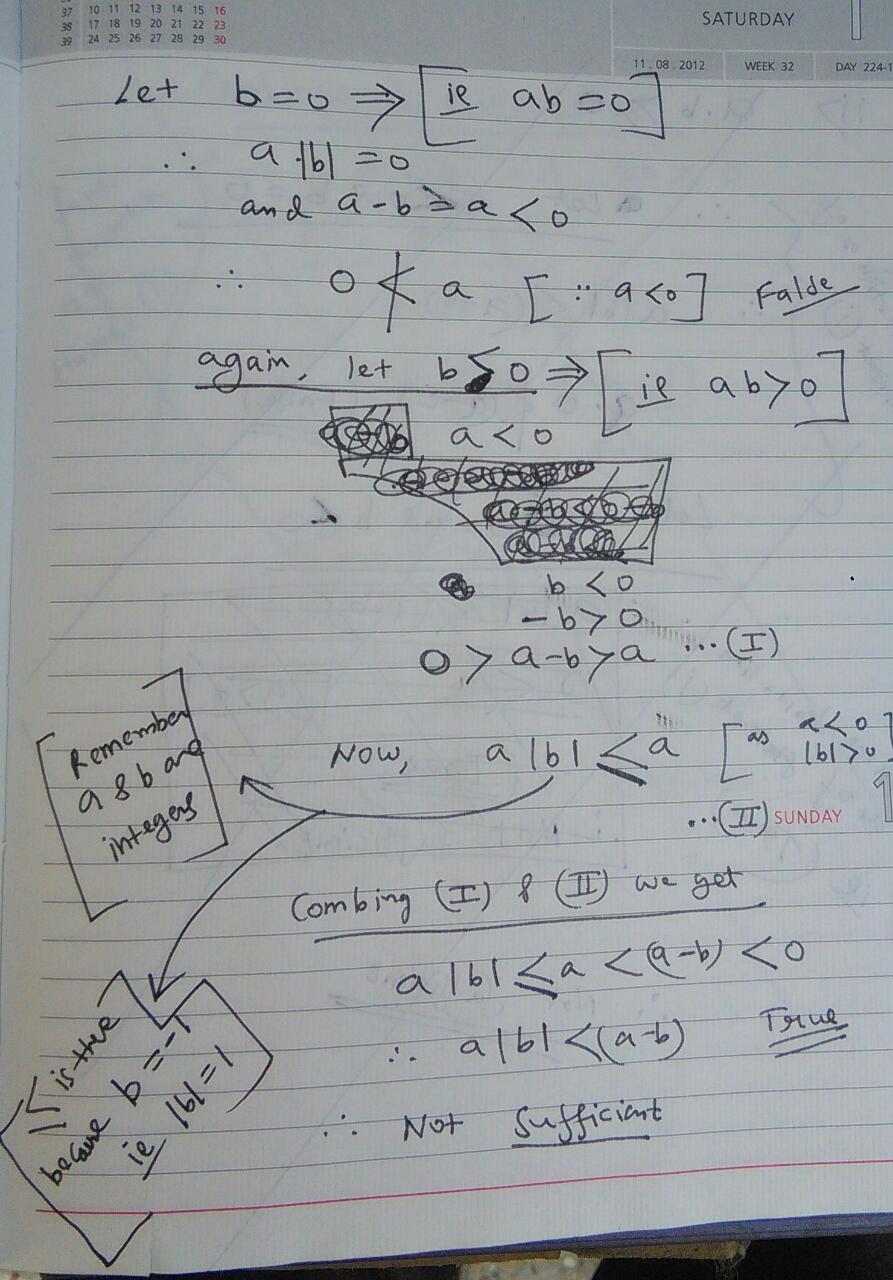 37 10 11 12 13 14 15 16
38 17 18 19 20 21 22 23
39 24 25 26 27 28 29 30
SATURDAY
11.08.2012 WEEK 32 DAY 224-1
Let b=0 ⇒ [ie ab=0]
∴ a.|b|=0
and a-b=a<0
∴ 0 ≮ a [∵ a<0] Falde
again, let b<0 ⇒ [ie ab>0]
a<0
b<0
-b>0
0>a-b>a ...(I)
Now, a|b| ≤ a [as a<0 |b|>0
...(II)
SUNDAY 1
[Remember
a & b are
integers]
Combing (I) & (II) we get
a|b| ≤ a < (a-b) < 0
∴ a|b| < (a-b) True
≤ is there
because b=-1
ie |b|=1
∴ Not Sufficient